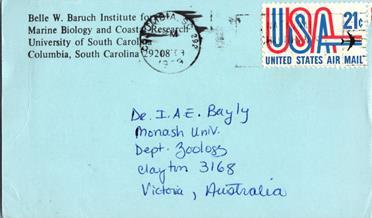 Belle W. Baruch Institute for
Marine Biology and Coastal Research
University of South Carolina
Columbia, South Carolina 29208
COLUMBIA, S.C.
USA 21¢
UNITED STATES AIR MAIL
Dr. I.A.E. Bayly
Monash Univ.
Dept. Zoology
Clayton 3168
Victoria, Australia